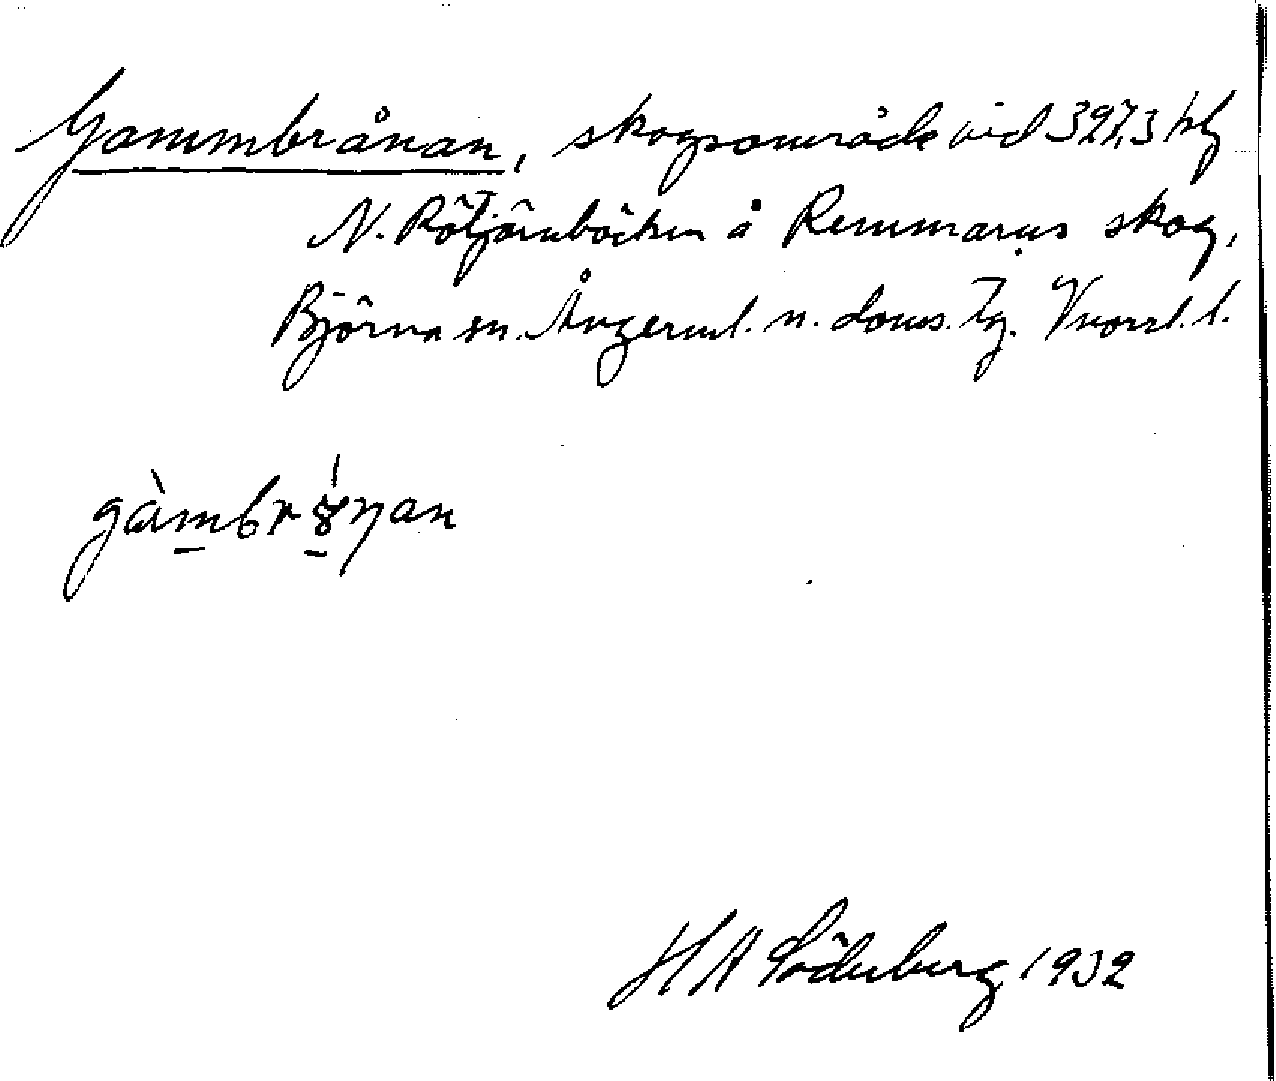 Gammbrånan, skogsområde vid 327,3 klg
N. Rötjärnbäcken å Remmarns skog,
Björna sn. Ångerml. n. doms. Tg. Vnorrl. l.
gàmbrånan
H A Söderberg 1932